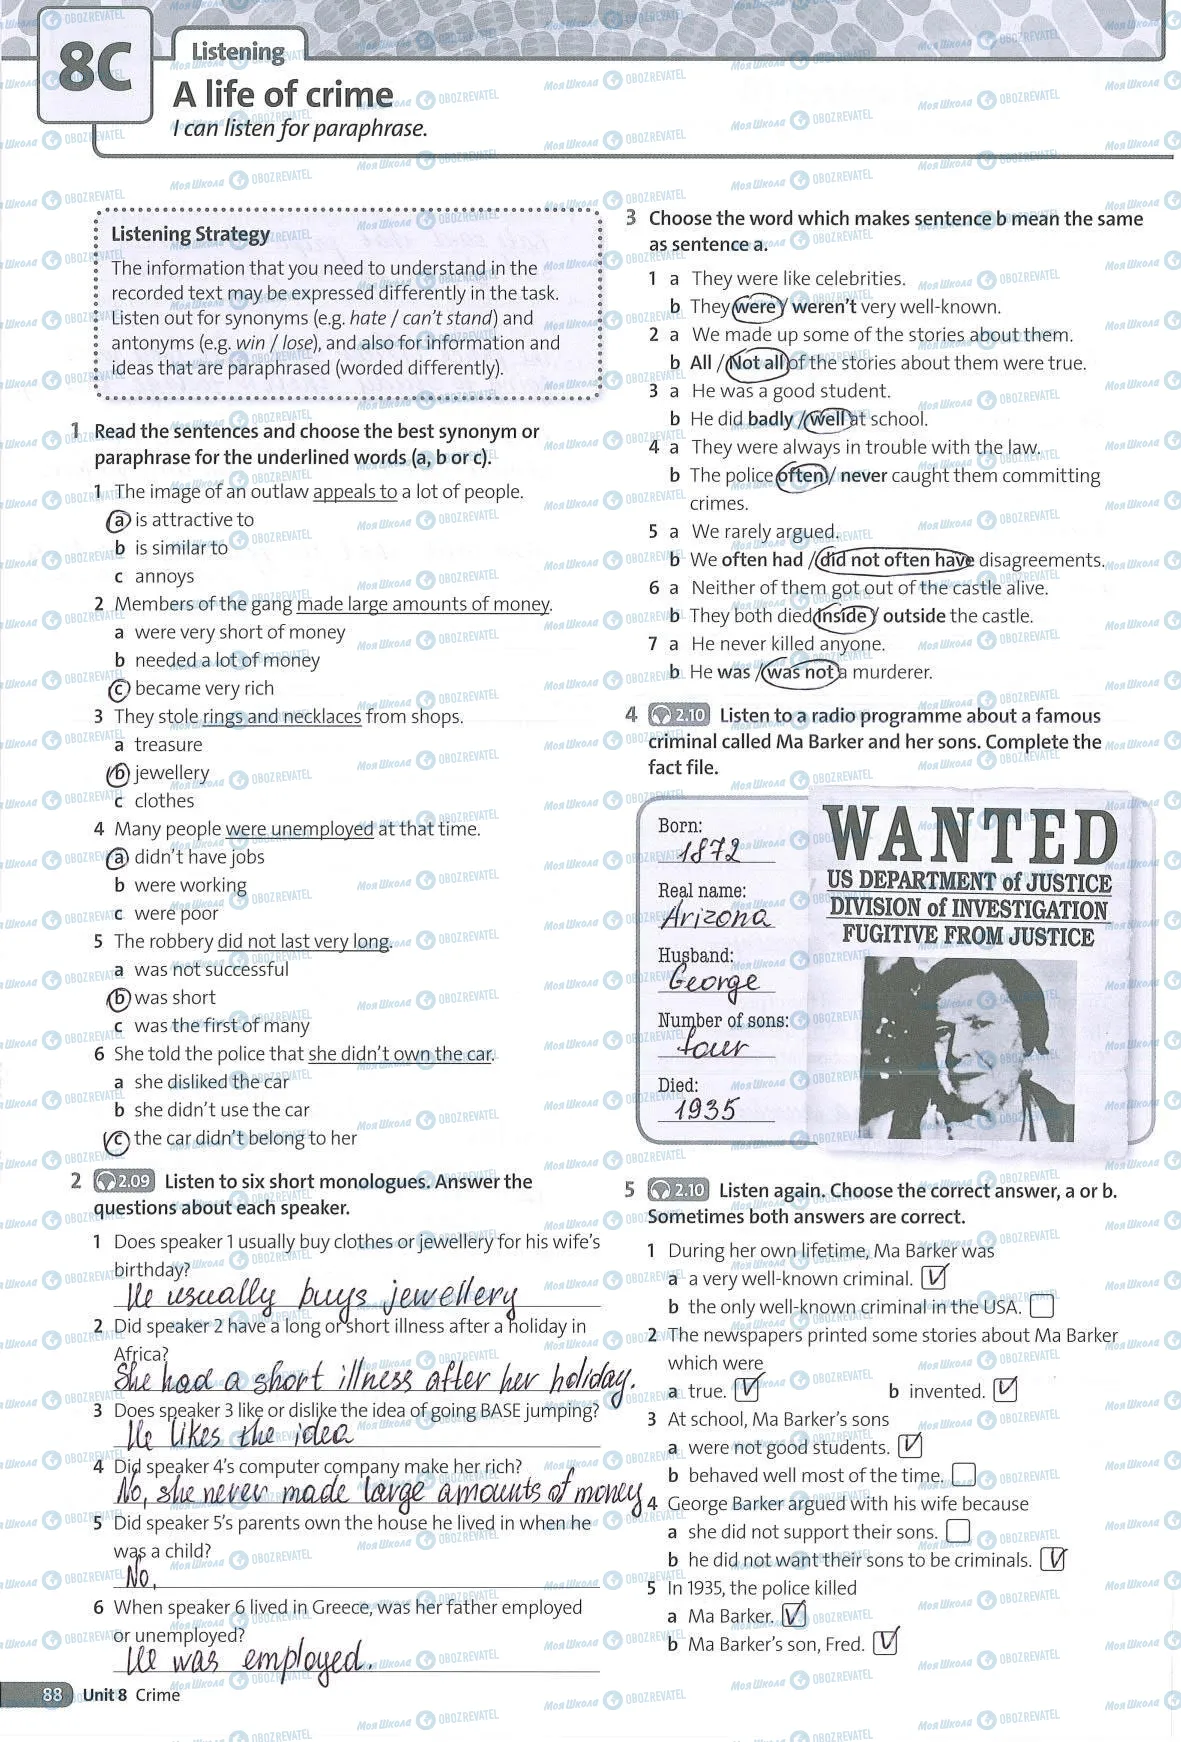 8C
Listening
A life of crime
I can listen for paraphrase.
Listening Strategy
The information that you need to understand in the
recorded text may be expressed differently in the task.
Listen out for synonyms (e.g. hate / can't stand) and
antonyms (e.g. win / lose), and also for information and
ideas that are paraphrased (worded differently).
1 Read the sentences and choose the best synonym or
paraphrase for the underlined words (a, b or c).
1 The image of an outlaw appeals to a lot of people.
a is attractive to
b is similar to
c annoys
2 Members of the gang made large amounts of money.
a were very short of money
b needed a lot of money
c became very rich
3 They stole rings and necklaces from shops.
a treasure
b jewellery
c clothes
4 Many people were unemployed at that time.
a didn't have jobs
b were working
c were poor
5 The robbery did not last very long.
a was not successful
b was short
c was the first of many
6 She told the police that she didn't own the car.
a she disliked the car
b she didn't use the car
c the car didn't belong to her
2 2.09 Listen to six short monologues. Answer the
questions about each speaker.
1 Does speaker 1 usually buy clothes or jewellery for his wife's
birthday?
He usually buys jewellery
2 Did speaker 2 have a long or short illness after a holiday in
Africa?
She had a short illness after her holiday.
3 Does speaker 3 like or dislike the idea of going BASE jumping?
He likes the idea
4 Did speaker 4's computer company make her rich?
No, she never made large amounts of money
5 Did speaker 5's parents own the house he lived in when he
was a child?
No,
6 When speaker 6 lived in Greece, was her father employed
or unemployed?
He was employed.
88 Unit 8 Crime
3 Choose the word which makes sentence b mean the same
as sentence a.
1 a They were like celebrities.
b They were / weren't very well-known.
2 a We made up some of the stories about them.
b All / Not all of the stories about them were true.
3 a He was a good student.
b He did badly / well at school.
4 a They were always in trouble with the law.
b The police often / never caught them committing
crimes.
5 a We rarely argued.
b We often had / did not often have disagreements.
6 a Neither of them got out of the castle alive.
b They both died inside / outside the castle.
7 a He never killed anyone.
b He was / was not a murderer.
4 2.10 Listen to a radio programme about a famous
criminal called Ma Barker and her sons. Complete the
fact file.
Born:
1872
Real name:
Arizona
Husband:
George
Number of sons:
four
Died:
1935
WANTED
US DEPARTMENT of JUSTICE
DIVISION of INVESTIGATION
FUGITIVE FROM JUSTICE
5 2.10 Listen again. Choose the correct answer, a or b.
Sometimes both answers are correct.
1 During her own lifetime, Ma Barker was
a a very well-known criminal. V
b the only well-known criminal in the USA.
2 The newspapers printed some stories about Ma Barker
which were
a true. V b invented. V
3 At school, Ma Barker's sons
a were not good students. V
b behaved well most of the time.
4 George Barker argued with his wife because
a she did not support their sons.
b he did not want their sons to be criminals. V
5 In 1935, the police killed
a Ma Barker. V
b Ma Barker's son, Fred. V
Моя Школа OBOZREVATEL